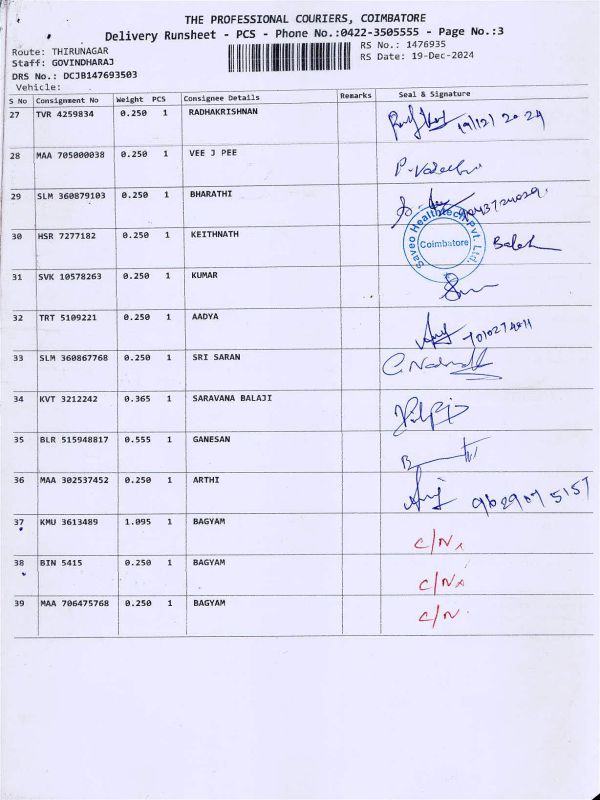 THE PROFESSIONAL COURIERS, COIMBATORE
Delivery Runsheet - PCS - Phone No.:0422-3505555 - Page No.:3
Route: THIRUNAGAR
RS No.: 1476935
Staff: GOVINDHARAJ
RS Date: 19-Dec-2024
DRS No.: DCJB147693503
Vehicle:
S No Consignment No Weight PCS Consignee Details Remarks Seal & Signature
27 TVR 4259834 0.250 1 RADHAKRISHNAN 19/12/2024
28 MAA 705000038 0.250 1 VEE J PEE
29 SLM 360879103 0.250 1 BHARATHI
30 HSR 7277182 0.250 1 KEITHNATH
Saveo Healthtech Pvt. Ltd.
Coimbatore
31 SVK 10578263 0.250 1 KUMAR
32 TRT 5109221 0.250 1 AADYA
33 SLM 360867768 0.250 1 SRI SARAN
34 KVT 3212242 0.365 1 SARAVANA BALAJI
35 BLR 515948817 0.555 1 GANESAN
36 MAA 302537452 0.250 1 ARTHI
37 KMU 3613489 1.095 1 BAGYAM C/N
38 BIN 5415 0.250 1 BAGYAM C/N
39 MAA 706475768 0.250 1 BAGYAM C/N